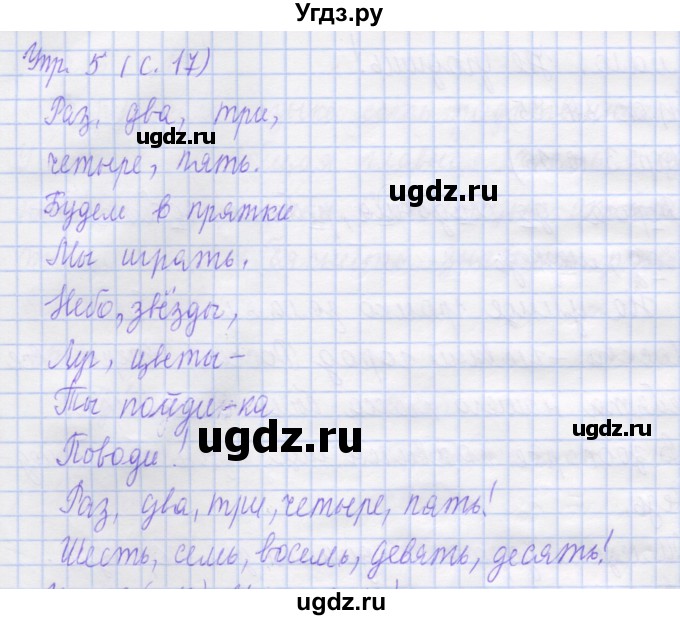 Угдз.ру
Упр. 5 (с. 17)
Раз, два, три,
ugdz.ru
четыре, пять.
ugdz.ru
Будем в прятки
Мы играть.
Небо, звёзды,
ugdz.ru
Луг, цветы –
Ты пойди-ка
ugdz.ru
ugdz.ru
Поводи!
Раз, два, три, четыре, пять!
Шесть, семь, восемь, девять, десять!
ugdz.ru